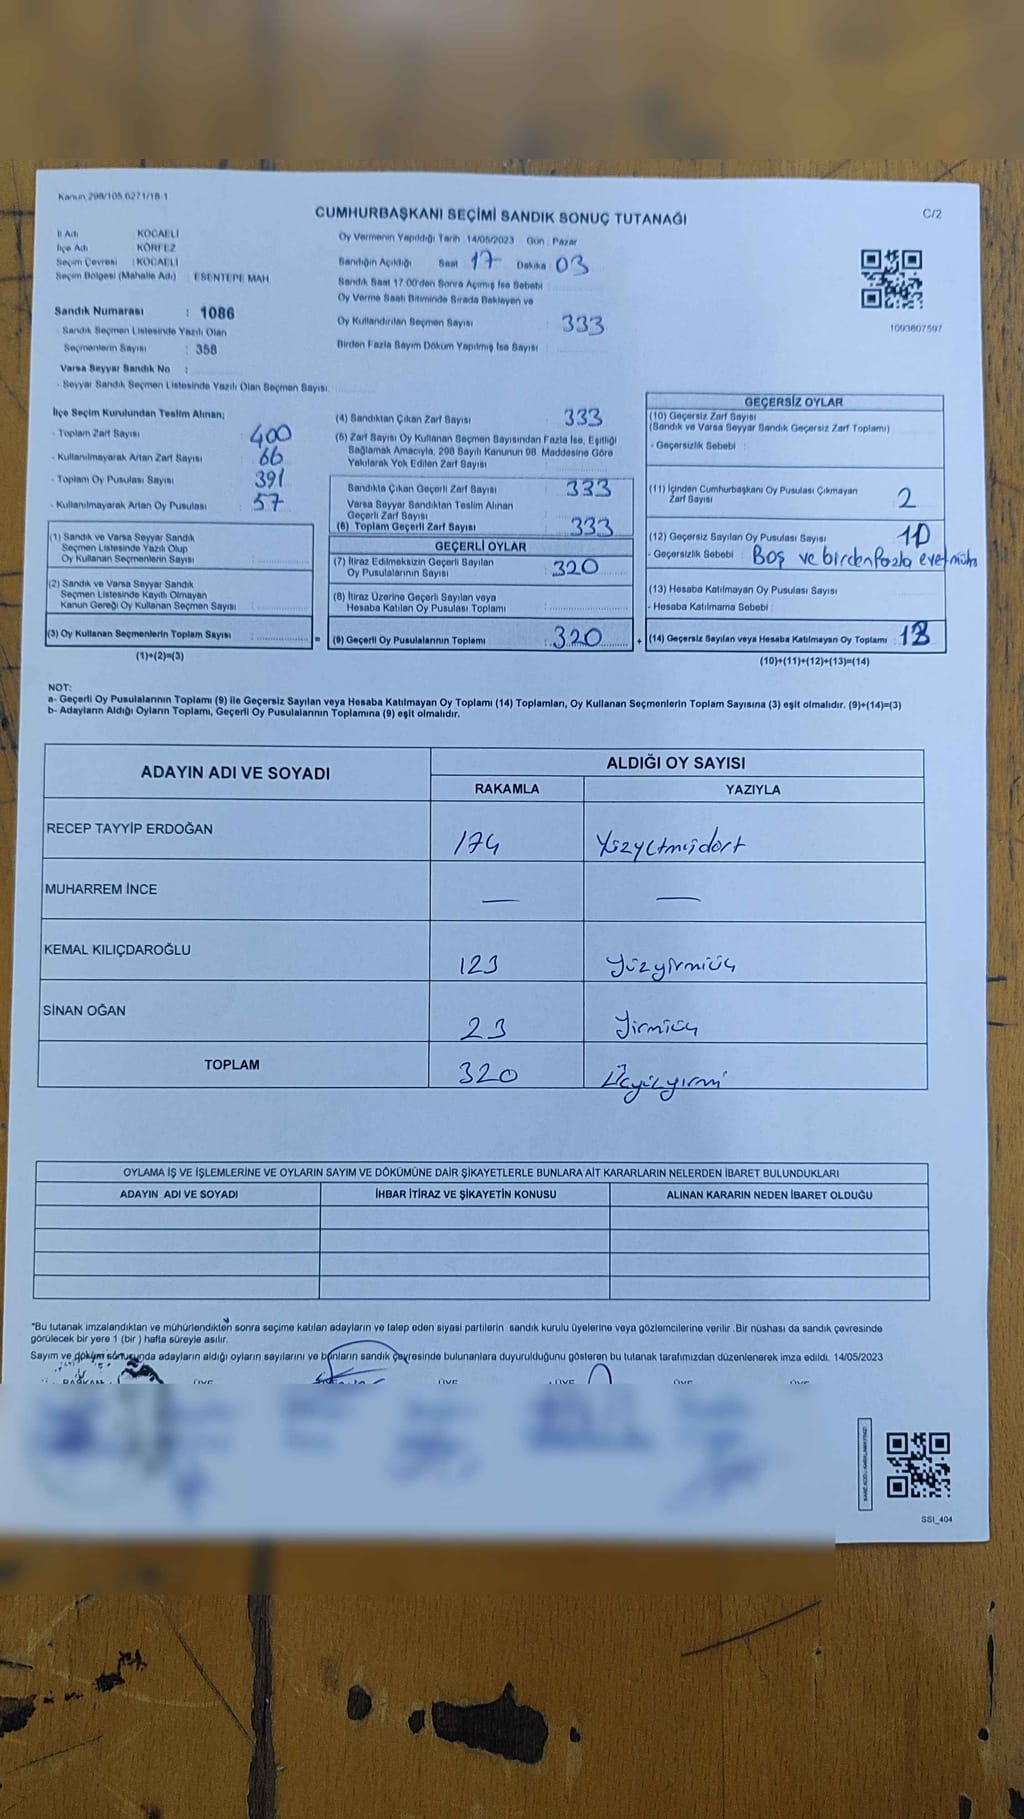 Kanun 298/105.6271/16-1
CUMHURBAŞKANI SEÇİMİ SANDIK SONUÇ TUTANAĞI
C/2
İl Adı KOCAELİ
İlçe Adı KÖRFEZ
Seçim Çevresi : KOCAELİ
Seçim Bölgesi (Mahalle Adı) ESENTEPE MAH
Sandık Numarası : 1086
- Sandık Seçmen Listesinde Yazılı Olan
Seçmenlerin Sayısı : 358
Varsa Seyyar Sandık No :
- Seyyar Sandık Seçmen Listesinde Yazılı Olan Seçmen Sayısı
Oy Vermenin Yapıldığı Tarih 14/05/2023 Gün : Pazar
Sandığın Açıldığı Saat 17 Dakika 03
Sandık Saat 17.00'den Sonra Açımış İse Sebebi
Oy Verme Saati Bitiminde Sırada Bekleyen ve
Oy Kullandırılan Seçmen Sayısı 333
Birden Fazla Sayım Döküm Yapılmış İse Sayısı
1093807597
İlçe Seçim Kurulundan Teslim Alınan;
- Toplam Zarf Sayısı 400
- Kullanılmayarak Artan Zarf Sayısı 66
- Toplam Oy Pusulası Sayısı 391
- Kullanılmayarak Artan Oy Pusulası 57
(1) Sandık ve Varsa Seyyar Sandık
Seçmen Listesinde Yazılı Olup
Oy Kullanan Seçmenlerin Sayısı
(2) Sandık ve Varsa Seyyar Sandık
Seçmen Listesinde Kayıtlı Olmayan
Kanun Gereği Oy Kullanan Seçmen Sayısı
(3) Oy Kullanan Seçmenlerin Toplam Sayısı : =
(1)+(2)=(3)
(4) Sandıktan Çıkan Zarf Sayısı 333
(5) Zarf Sayısı Oy Kullanan Seçmen Sayısından Fazla İse, Eşitliği
Sağlamak Amacıyla, 298 Sayılı Kanunun 98. Maddesine Göre
Yakılarak Yok Edilen Zarf Sayısı
Sandıkta Çıkan Geçerli Zarf Sayısı 333
Varsa Seyyar Sandıktan Teslim Alınan
Geçerli Zarf Sayısı
(6) Toplam Geçerli Zarf Sayısı 333
GEÇERLİ OYLAR
(7) İtiraz Edilmeksizin Geçerli Sayılan
Oy Pusulalarının Sayısı 320
(8) İtiraz Üzerine Geçerli Sayılan veya
Hesaba Katılan Oy Pusulası Toplamı
(9) Geçerli Oy Pusulalarının Toplamı : 320 +
GEÇERSİZ OYLAR
(10) Geçersiz Zarf Sayısı
(Sandık ve Varsa Seyyar Sandık Geçersiz Zarf Toplamı)
- Geçersizlik Sebebi :
(11) İçinden Cumhurbaşkanı Oy Pusulası Çıkmayan
Zarf Sayısı 2
(12) Geçersiz Sayılan Oy Pusulası Sayısı
- Geçersizlik Sebebi : Boş ve birden fazla evet mührü
(13) Hesaba Katılmayan Oy Pusulası Sayısı
- Hesaba Katılmama Sebebi
(14) Geçersiz Sayılan veya Hesaba Katılmayan Oy Toplamı : 13
(10)+(11)+(12)+(13)=(14)
NOT:
a- Geçerli Oy Pusulalarının Toplamı (9) ile Geçersiz Sayılan veya Hesaba Katılmayan Oy Toplamı (14) Toplamları, Oy Kullanan Seçmenlerin Toplam Sayısına (3) eşit olmalıdır. (9)+(14)=(3)
b- Adayların Aldığı Oyların Toplamı, Geçerli Oy Pusulalarının Toplamına (9) eşit olmalıdır.
ADAYIN ADI VE SOYADI
ALDIĞI OY SAYISI
RAKAMLA YAZIYLA
RECEP TAYYİP ERDOĞAN 174 Yüzyetmişdört
MUHARREM İNCE — —
KEMAL KILIÇDAROĞLU 123 Yüzyirmiüç
SİNAN OĞAN 23 Yirmiüç
TOPLAM 320 Üçyüzyirmi
OYLAMA İŞ VE İŞLEMLERİNE VE OYLARIN SAYIM VE DÖKÜMÜNE DAİR ŞİKAYETLERLE BUNLARA AİT KARARLARIN NELERDEN İBARET BULUNDUKLARI
ADAYIN ADI VE SOYADI İHBAR İTİRAZ VE ŞİKAYETİN KONUSU ALINAN KARARIN NEDEN İBARET OLDUĞU
"Bu tutanak imzalandıktan ve mühürlendikten sonra seçime katılan adayların ve talep eden siyasi partilerin sandık kurulu üyelerine veya gözlemcilerine verilir .Bir nüshası da sandık çevresinde
görülecek bir yere 1 (bir ) hafta süreyle asılır.
Sayım ve döküm sonucunda adayların aldığı oyların sayılarını ve bunların sandık çevresinde bulunanlara duyurulduğunu gösteren bu tutanak tarafımızdan düzenlenerek imza edildi. 14/05/2023
BAŞKAN ÜYE ÜYE ÜYE ÜYE ÜYE
SSI_404